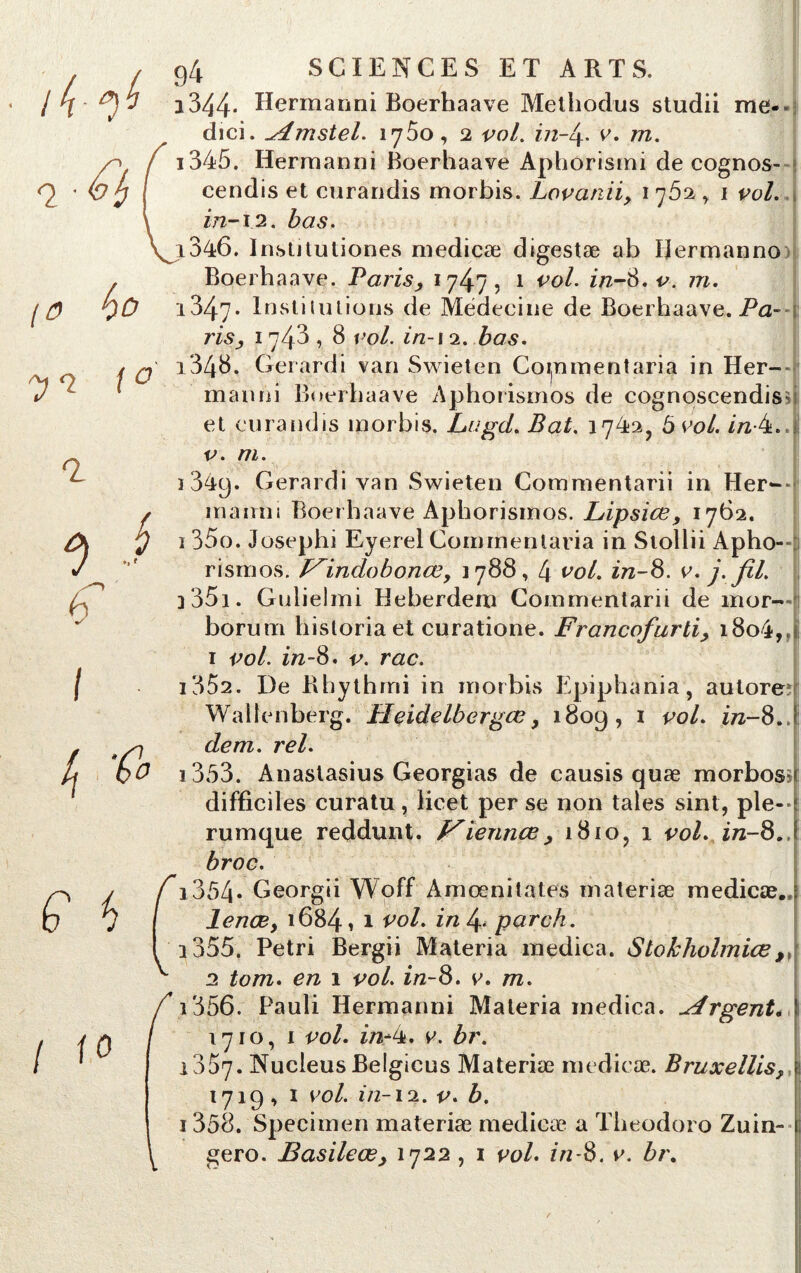 94 SCIENCES ET ARTS.
14 95
1344. Hermanni Boerhaave Methodus studii me-
dici. Amstel. 1750, 2 vol. in-4. v. m.
1345. Hermanni Boerhaave Aphorismi de cognos-
2
cendis et curandis morbis. Lovanii, 1752, 1 vol.
in-12. bas.
1346. Institutiones medicæ digestæ ab Hermanno
Boerhaave. Paris, 1747, 1 vol. in-8. v. m.
10 50
1347. Institutions de Médecine de Boerhaave. Pa-
ris, 1743, 8 vol. in-12. bas.
10
1348. Gerardi van Swieten Commentaria in Her-
manni Boerhaave Aphorismos de cognoscendis
et curandis morbis. Lugd. Bat. 1742, 5 vol. in-4.
v. m.
2
1349. Gerardi van Swieten Commentarii in Her-
manni Boerhaave Aphorismos. Lipsiæ, 1762.
1350. Josephi Eyerel Commentaria in Stollii Apho-
rismos. Vindobonæ, 1788, 4 vol. in-8. v. j. fil.
6
1351. Gulielmi Heberdem Commentarii de mor-
borum historia et curatione. Francofurti, 1804,
1 vol. in-8. v. rac.
1
1352. De Rhythmi in morbis Epiphania, autore
Wallenberg. Heidelbergæ, 1809, 1 vol. in-8.
dem. rel.
4 60
1353. Anastasius Georgias de causis quæ morbos
difficiles curatu, licet per se non tales sint, ple-
rumque reddunt. Viennæ, 1810, 1 vol. in-8.
broc.
6 5
1354. Georgii Woff Amœnitates materiæ medicæ.
Ienæ, 1684, 1 vol. in 4. parch.
1355. Petri Bergii Materia medica. Stokholmiæ,
2 tom. en 1 vol. in-8. v. m.
1356. Pauli Hermanni Materia medica. Argent.
1 10
1710, 1 vol. in-4. v. br.
1357. Nucleus Belgicus Materiæ medicæ. Bruxellis,
1719, 1 vol. in-12. v. b.
1358. Specimen materiæ medicæ a Theodoro Zuin-
gero. Basileæ, 1722, 1 vol. in-8. v. br.